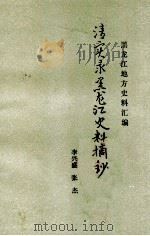 黑龙江地方史料汇编
清实录黑龙江史料摘钞
李兴盛 张杰